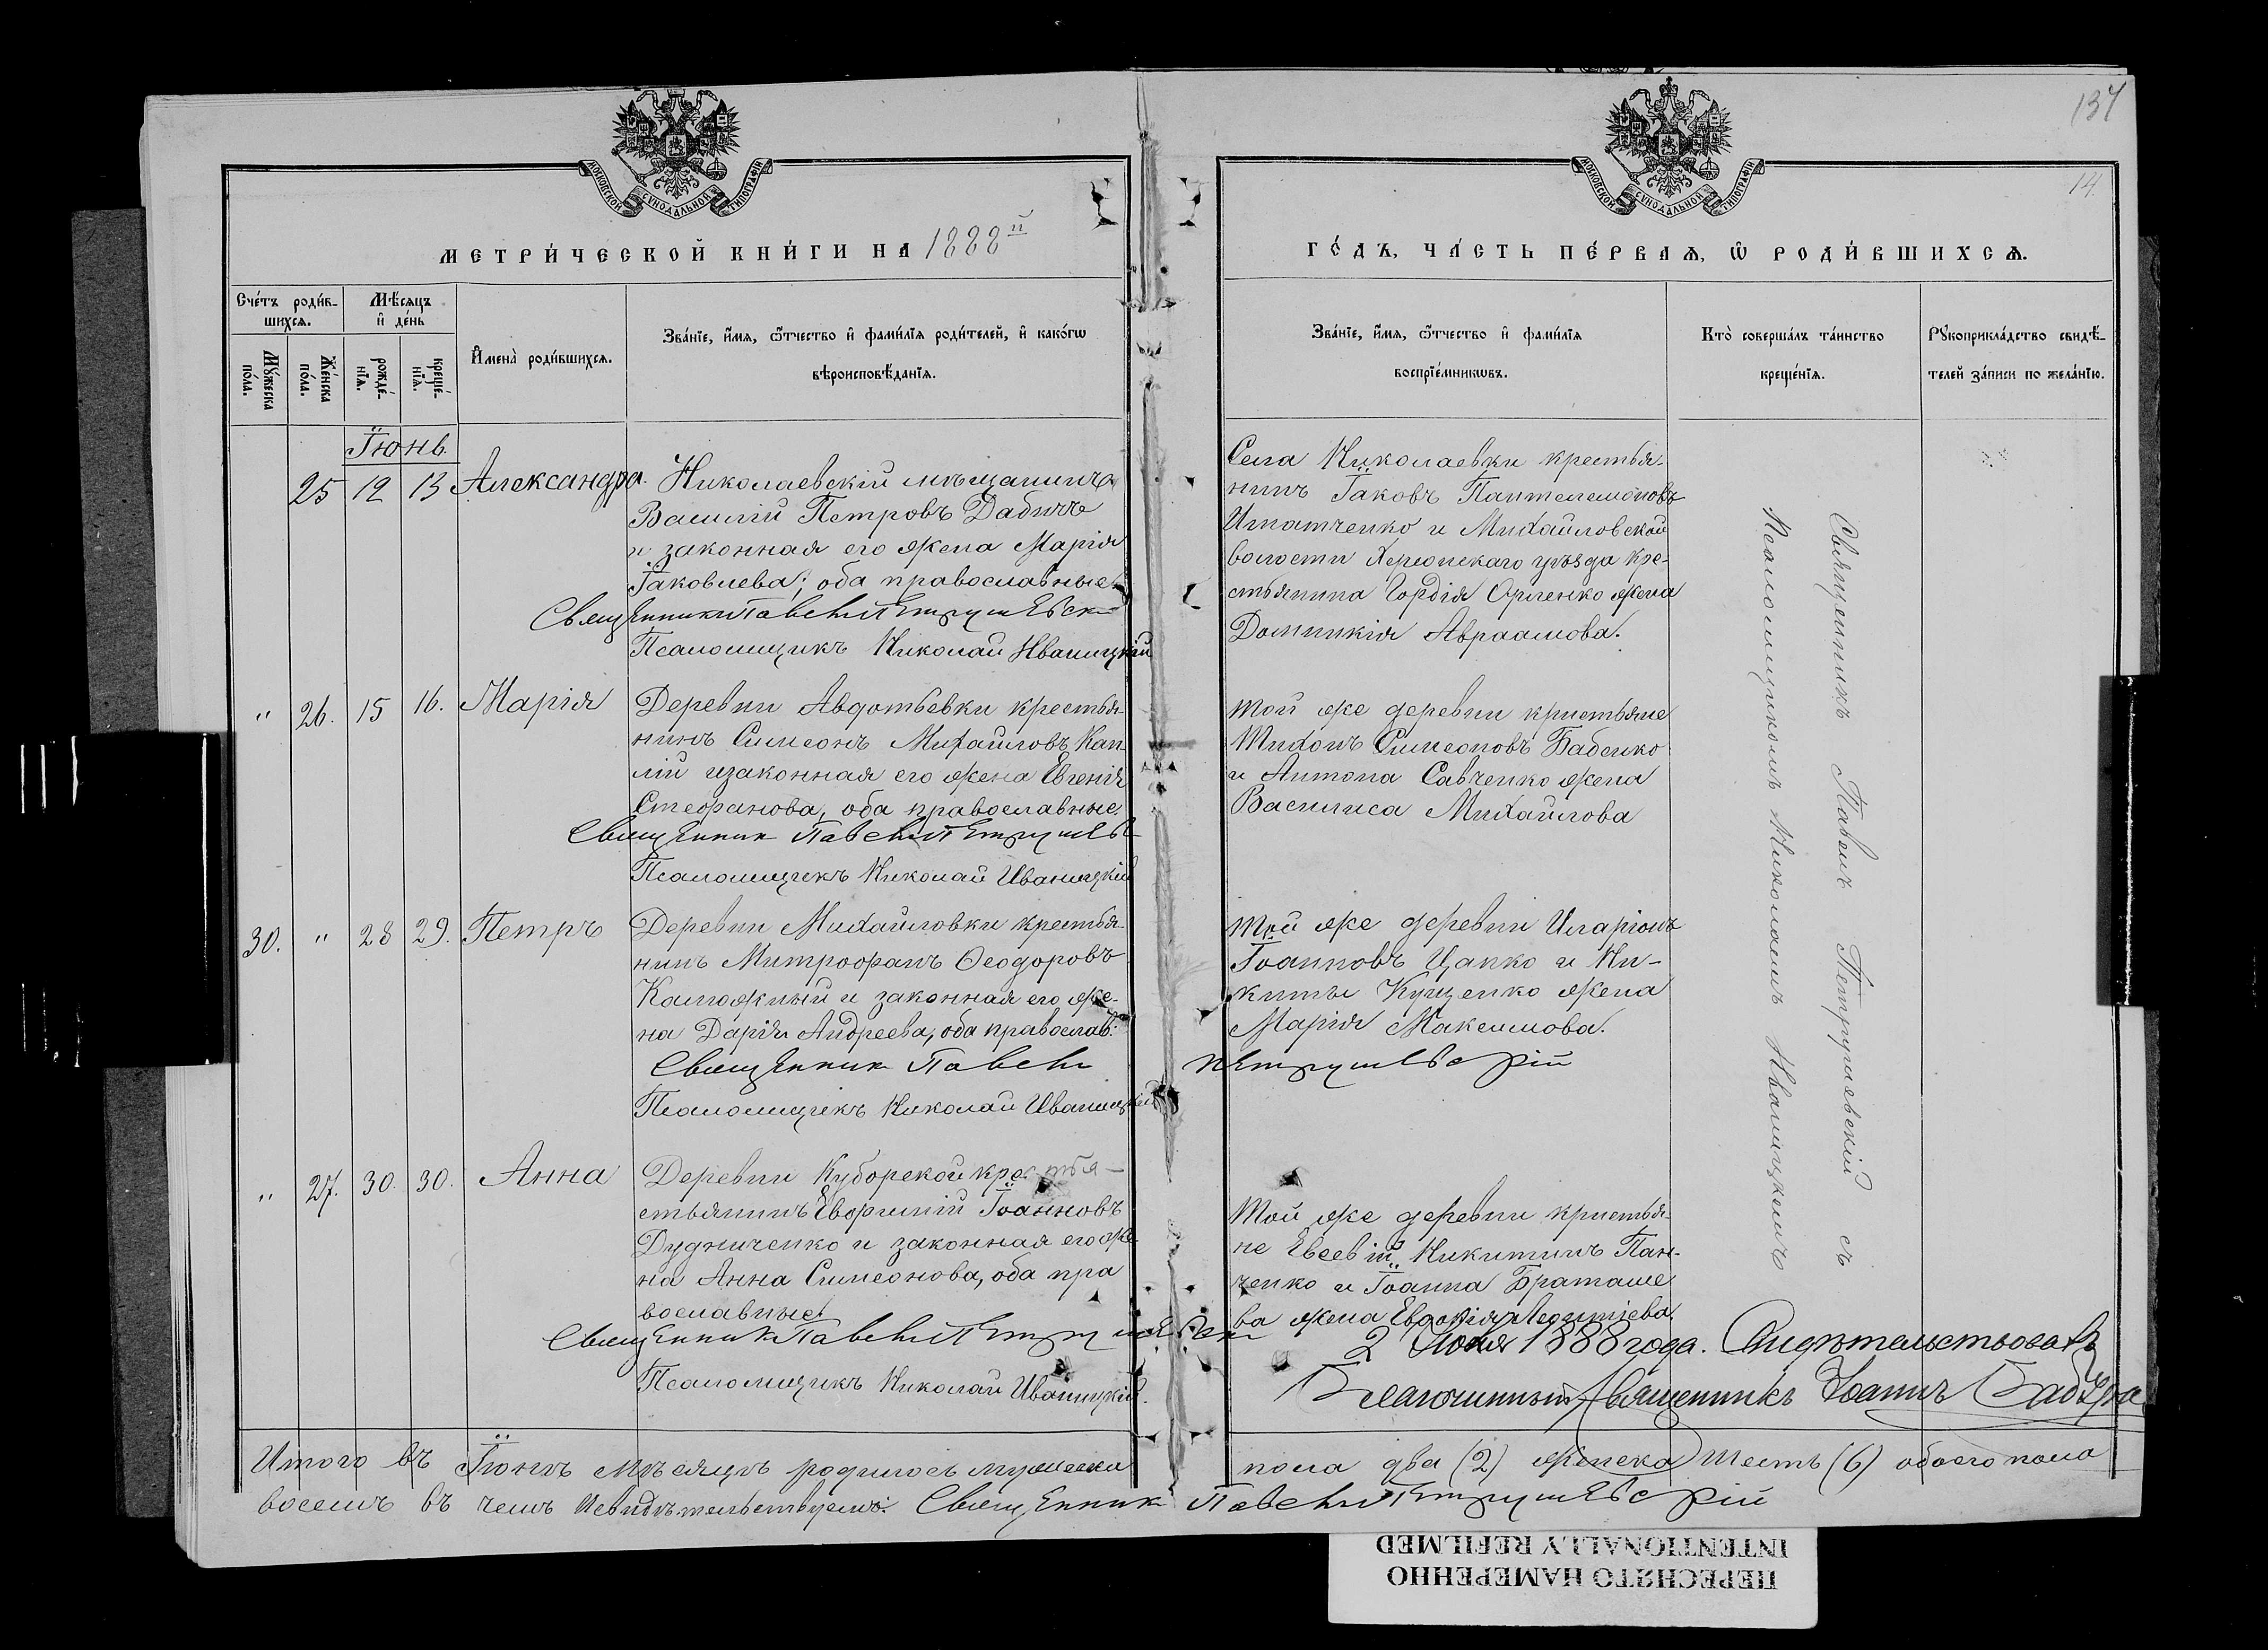 137
14.
МОСКОВСКОЙ СѴНОДАЛЬНОЙ ТИПОГРАФІИ
МОСКОВСКОЙ СѴНОДАЛЬНОЙ ТИПОГРАФІИ
МЕТРИ́ЧЕСКОЙ КНИ́ГИ НА 1888й
ГО́ДЪ, ЧА́СТЬ ПЕ́РВАѦ, Ѡ҆ РОДИ́ВШИХСѦ.
Сче́тъ роди́в-
шихсѧ.
Мѣ́сѧцъ
и҆ де́нь
Мꙋ́жеска
по́ла.
Же́нска
по́ла.
рожде́-
нїѧ.
креще́-
нїѧ.
И҆мена̀ роди́вшихсѧ.
Зва́нїе, и҆́мѧ, ѻ҆́тчество и҆ фами́лїѧ роди́телей, и҆ како́гѡ
вѣроисповѣ́данїѧ.
Зва́нїе, и҆́мѧ, ѻ҆́тчество и҆ фами́лїѧ
воспрїе́мникѡвъ.
Кто̀ соверша́лъ та́инство
креще́нїѧ.
Рꙋкоприкла́дство свидѣ́-
телей за́писи по жела́нїю.
Іюнь.
25 12 13 Александра.
Николаевскій мѣщанинъ
Василій Петровъ Дабичъ
и законная его жена Марія
Іаковлева; оба православные
Священникъ Павелъ Петрушевскій
Псаломщикъ Николай Иваницкій
Села Николаевки крестья-
нинъ Іаковъ Пантелемоновъ
Игнатченко и Михайловской
волости Херсонскаго уѣзда кре-
стьянина Гордія Орленко жена
Домникія Авраамова.
" 26. 15 16. Марія
Деревни Авдотьевки крестья-
нинъ Симеонъ Михайловъ Кап-
лій и законная его жена Евгенія
Стефанова, оба православные.
Священник Павелъ Петрушев
Псаломщикъ Николай Иваницкій
той же деревни кристьяне
Тихонъ Симеоновъ Бабенко
и Антона Савченко жена
Василиса Михайлова
30. " 28 29. Петръ
Деревни Михайловки крестья-
нинъ Митрофанъ Ѳеодоровъ
Калюжный и законная его же-
на Дарія Андреева, оба православ:
Священник Павелъ Петрушевскій
Псаломщикъ Николай Иваницкій
той же деревни Иларіонъ
Іоанновъ Цапко и Ни-
киты Кущенко жена
Марія Максимова.
" 27. 30. 30. Анна
Деревни Куборской крестья-
стьянинъ Евфимій Іоанновъ
Дудниченко и законная его же-
на Анна Симеонова, оба пра
вославные
Священникъ Павелъ Петрушевскій
Псаломщикъ Николай Иваницкій.
Той же деревни кристья-
не Евсевій Никитинъ Пан-
ченко и Іоанна Браташе
ва жена Евдокія Леонтіева.
Священникъ Павелъ Петрушевскій съ
Псаломщикомъ Николаемъ Иваницкимъ
2 Іюля 1888 года. Свидѣтельствовалъ
Благочинный Священникъ Іоаннъ
Итого въ Іюнѣ мѣсяцѣ родилось мужеска пола два (2) женска шесть (6) обоего пола
восемь въ чемъ и свидѣтельствуемъ: Священник Павелъ Петрушевскій
ПЕРЕСНЯТО НАМЕРЕННО
INTENTIONALLY REFILMED